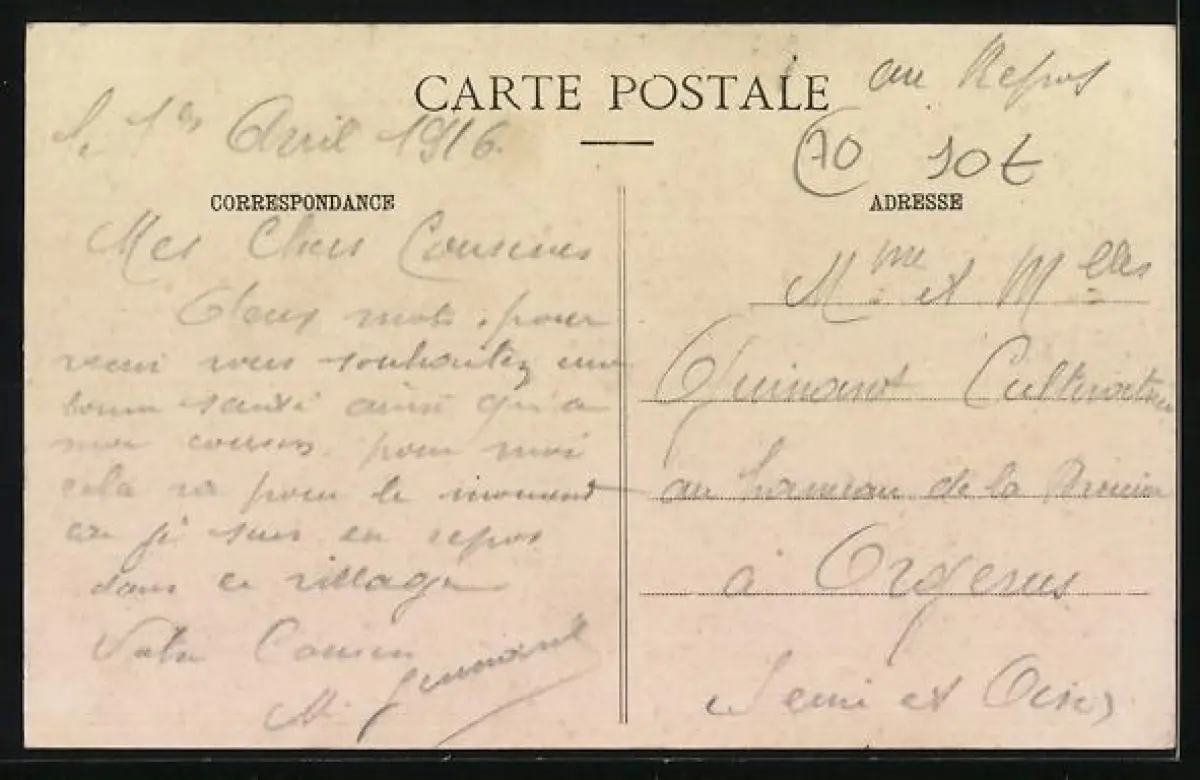 CARTE POSTALE
au Repos
70 50t
Le 1er Avril 1916.
CORRESPONDANCE
Mes Chers Cousines
Deux mots pour
venir vous souhaitez une
bonne santé ainsi qu'a
mon cousin pour moi
cela va pour le moment
car je suis en repos
dans ce village
Votre Cousin
ADRESSE
Mme et Melles
Cultivateur
au hameau de la
à Orgerus
Seine et Oise